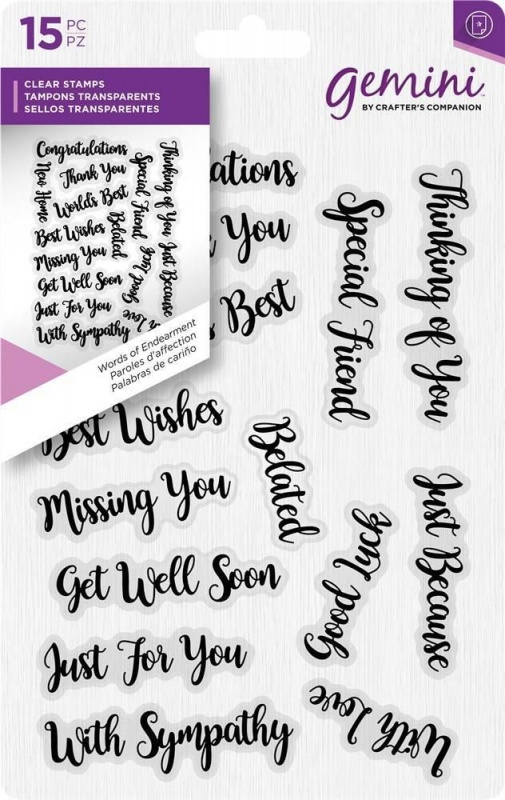 15 PC
PZ
gemini
BY CRAFTER'S COMPANION
CLEAR STAMPS
TAMPONS TRANSPARENTS
SELLOS TRANSPARENTES
Congratulations
New Home
Thank You
World's Best
Best Wishes
Missing You
Get Well Soon
Just For You
With Sympathy
Belated
Special Friend
Good Luck
Thinking of You
Just Because
Love
Words of Endearment
Paroles d'affection
Palabras de cariño
ations
You
Best
Best Wishes
Missing You
Get Well Soon
Just For You
With Sympathy
Belated
Special Friend
Good Luck
With Love
Thinking of You
Just Because